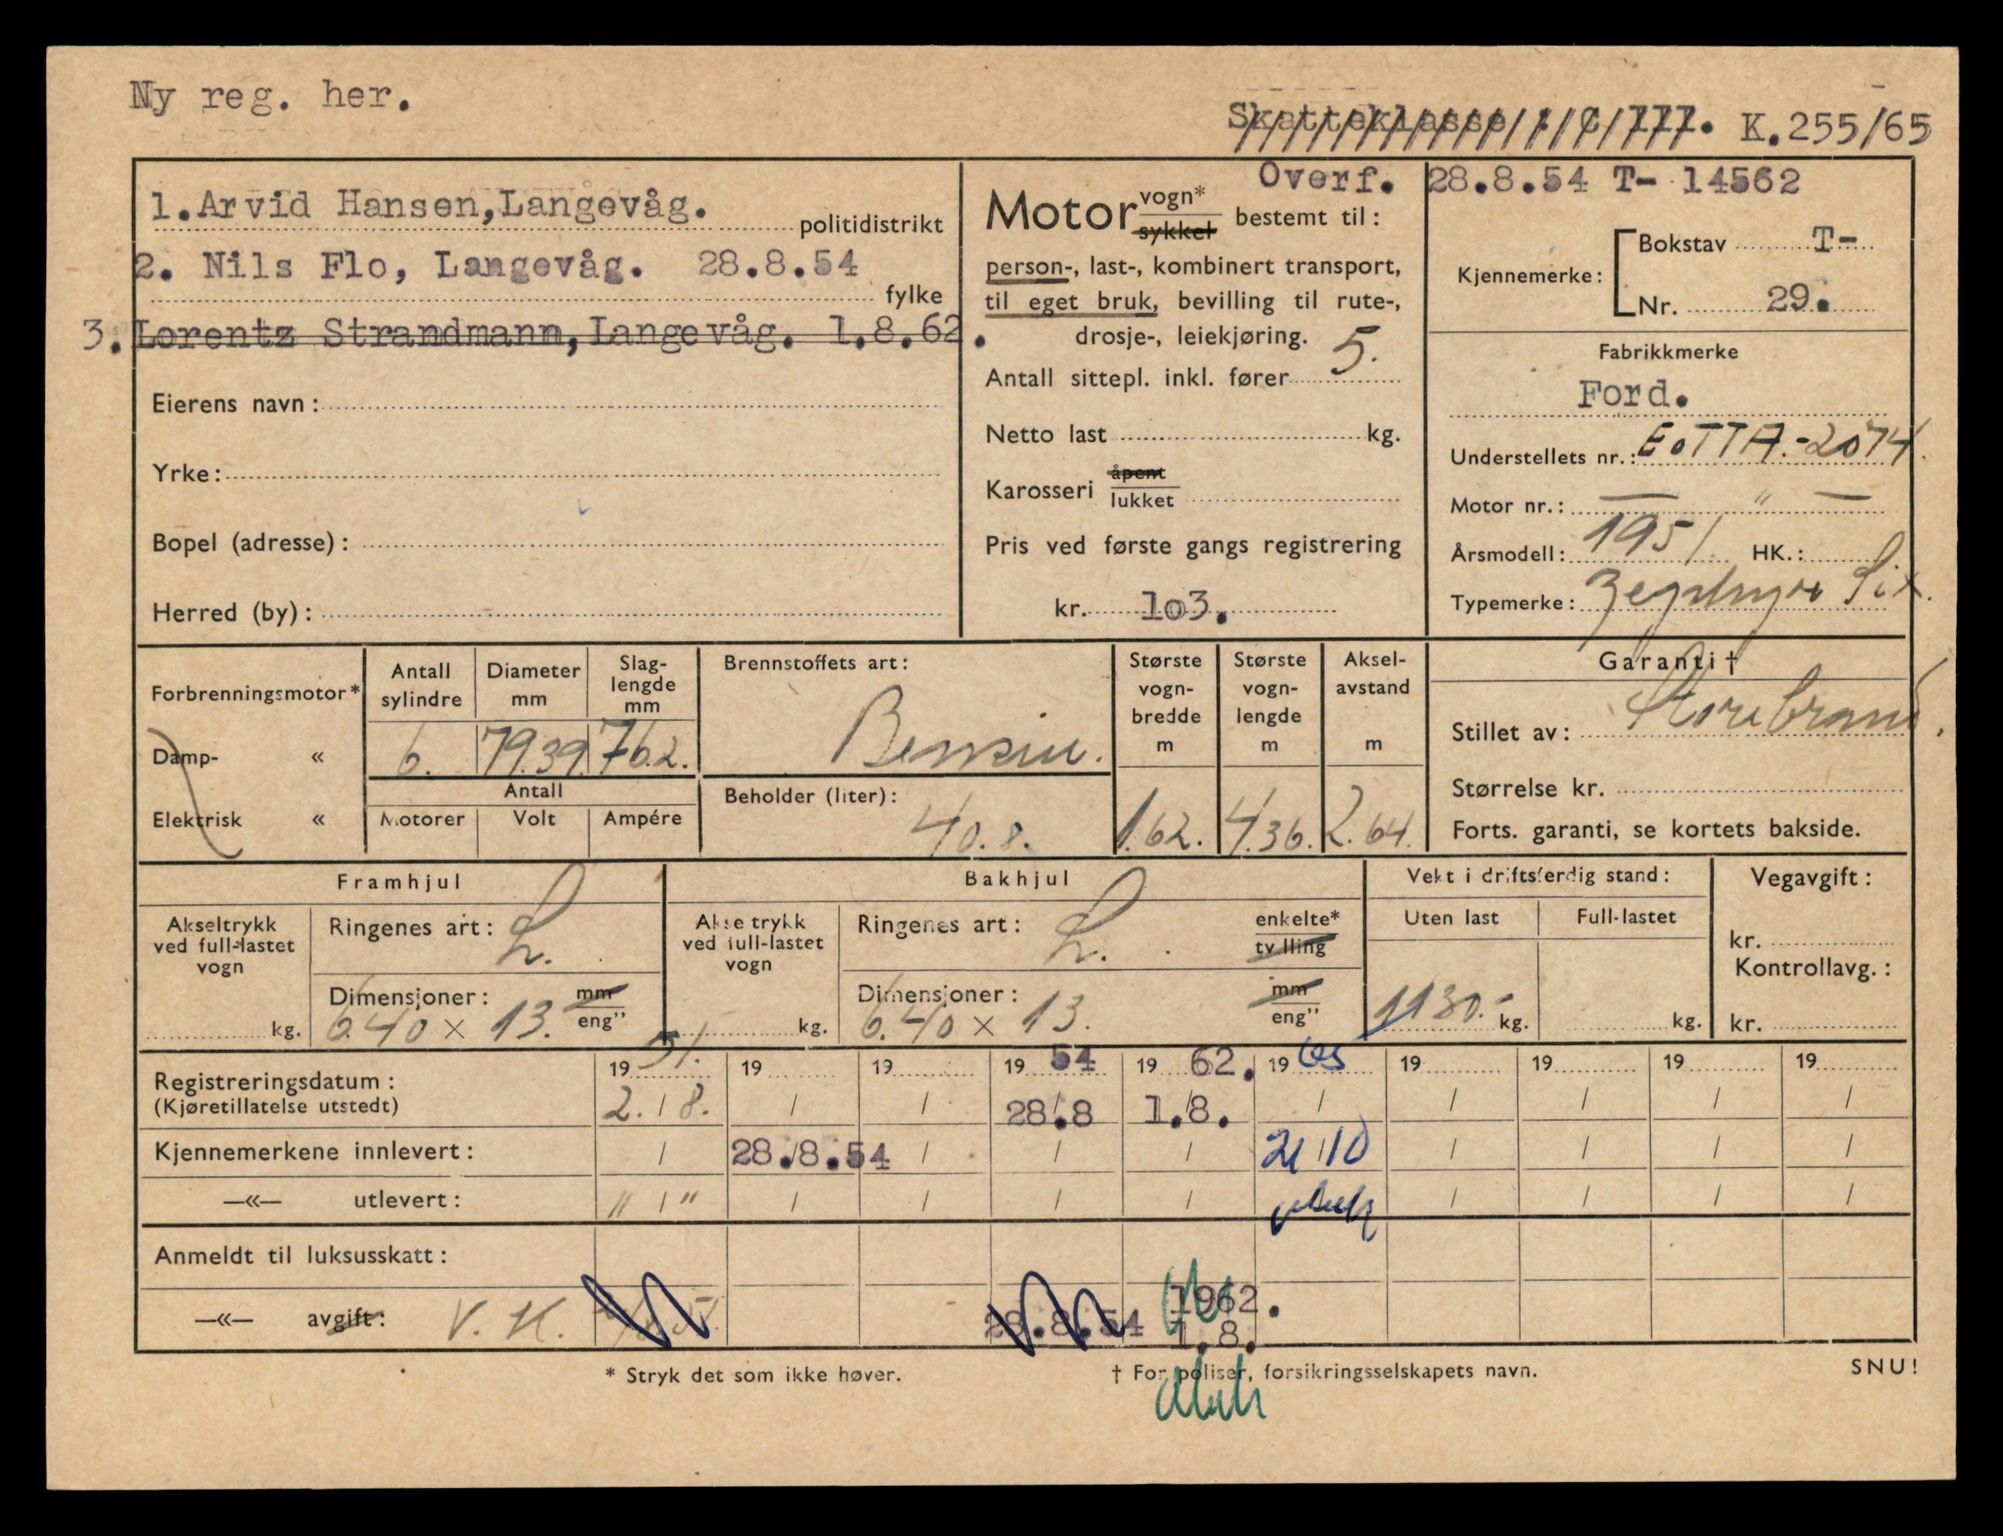 Ny reg. her.
Skatteklasse 1 C 777. K.255/65
1.Arvid Hansen,Langevåg. politidistrikt
2. Nils Flo, Langevåg. 28.8.54
fylke
3. Lorentz Strandmann,Langevåg. 1.8.62.
Eierens navn:
Yrke:
Bopel (adresse):
Herred (by):
Overf. 28.8.54 T- 14562
Motor vogn*
sykkel bestemt til:
person-, last-, kombinert transport,
til eget bruk, bevilling til rute-,
drosje-, leiekjøring.
Antall sittepl. inkl. fører 5.
Netto last kg.
Karosseri åpent
lukket
Pris ved første gangs registrering
kr. 1o3.
Kjennemerke: Bokstav T-
Nr. 29.
Fabrikkmerke
Ford.
Understellets nr.: EoTTA.-2074.
Motor nr.: — " —
Årsmodell: 1951. HK.:
Typemerke: Zephyr Six.
Forbrenningsmotor*
Damp- «
Elektrisk «
Antall sylindre
6.
Diameter mm
79.39.
Slag-lengde mm
76.2.
Antall
Motorer Volt Ampére
Brennstoffets art:
Bensin.
Beholder (liter):
40.8.
Største vogn-bredde m
1.62.
Største vogn-lengde m
4.36.
Aksel-avstand m
2.64.
Garanti †
Stillet av: Storebrand.
Størrelse kr.
Forts. garanti, se kortets bakside.
Framhjul
Akseltrykk ved full-lastet vogn
kg.
Ringenes art: L.
Dimensjoner: mm
6.40 x 13. eng"
Bakhjul
Akseltrykk ved full-lastet vogn
kg.
Ringenes art: L. enkelte*
tvilling
Dimensjoner: mm
6.40 x 13. eng"
Vekt i driftsferdig stand:
Uten last Full-lastet
1130.- kg. kg.
Vegavgift:
kr.
Kontrollavg.:
kr.
Registreringsdatum: 19 51. 19 19 19 54 19 62. 19 65 19 19 19 19
(Kjøretillatelse utstedt) 2. / 8. / / 28.8 1.8. / / / / /
Kjennemerkene innlevert: / 28.8.54 / / / 21/10 / / / /
—«— utlevert: " / " / / / / / / / /
Anmeldt til luksusskatt:
—«— avgift: V. K. 28.8.54 1962.
1.8.
* Stryk det som ikke høver.
† For poliser, forsikringsselskapets navn.
SNU!